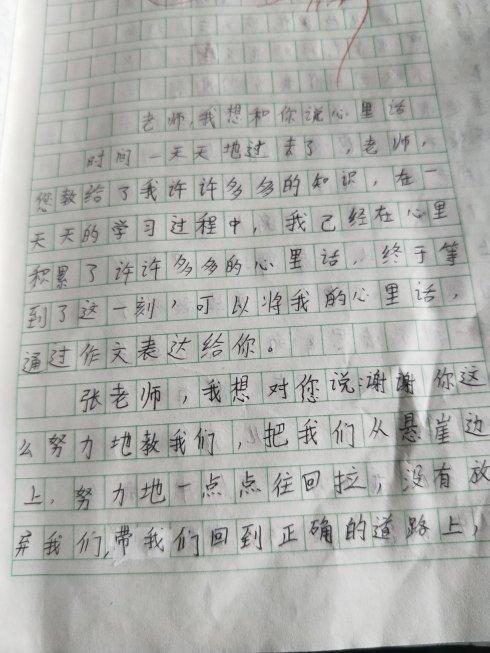 老师,我想和你说心里话
时间一天天地过去了,老师,
您教给了我许许多多的知识,在一
天天的学习过程中,我已经在心里
积累了许许多多的心里话,终于等
到了这一刻,可以将我的心里话,
通过作文表达给你。
张老师,我想对您说:谢谢你这
么努力地教我们,把我们从悬崖边
上,努力地一点点往回拉,没有放
弃我们,带我们回到正确的道路上,